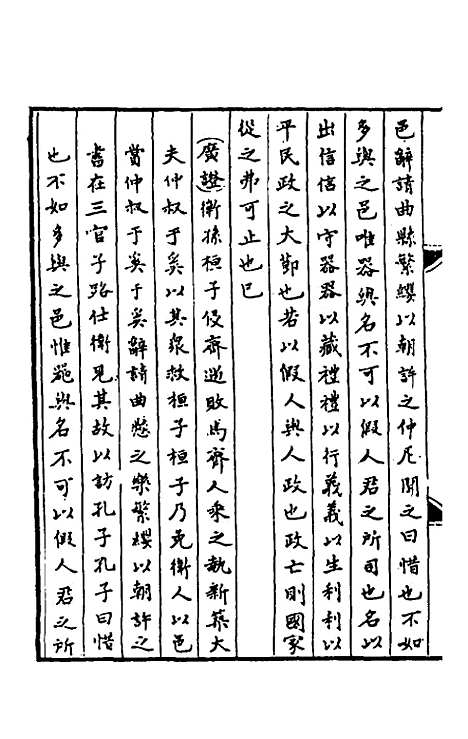 邑辭請曲縣繁纓以朝許之仲尼聞之曰惜也不如
多與之邑唯器與名不可以假人君之所司也名以
出信信以守器器以藏禮禮以行義義以生利利以
平民政之大節也若以假人與人政也政亡則國家
從之弗可止也已
(廣證)衛孫桓子侵齊遇敗焉齊人乘之執新築大
夫仲叔于奚以其眾救桓子桓子乃免衛人以邑
賞仲叔于奚于奚辭請曲懸之樂繁纓以朝許之
書在三官子路仕衛見其故以訪孔子孔子曰惜
也不如多與之邑惟器與名不可以假人君之所